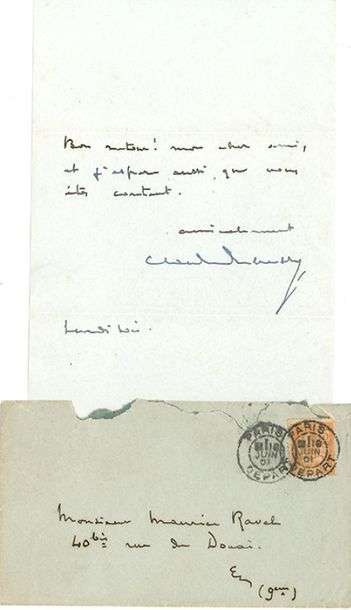 Bon retour! mon cher ami,
et j'espère aussi que vous
êtes content.
amicalement
Claude Debussy
Lundi soir.
PARIS
JUIN
01
DEPART
PARIS
JUIN
01
DEPART
Monsieur Maurice Ravel
40bis rue de Douai.
(9em)